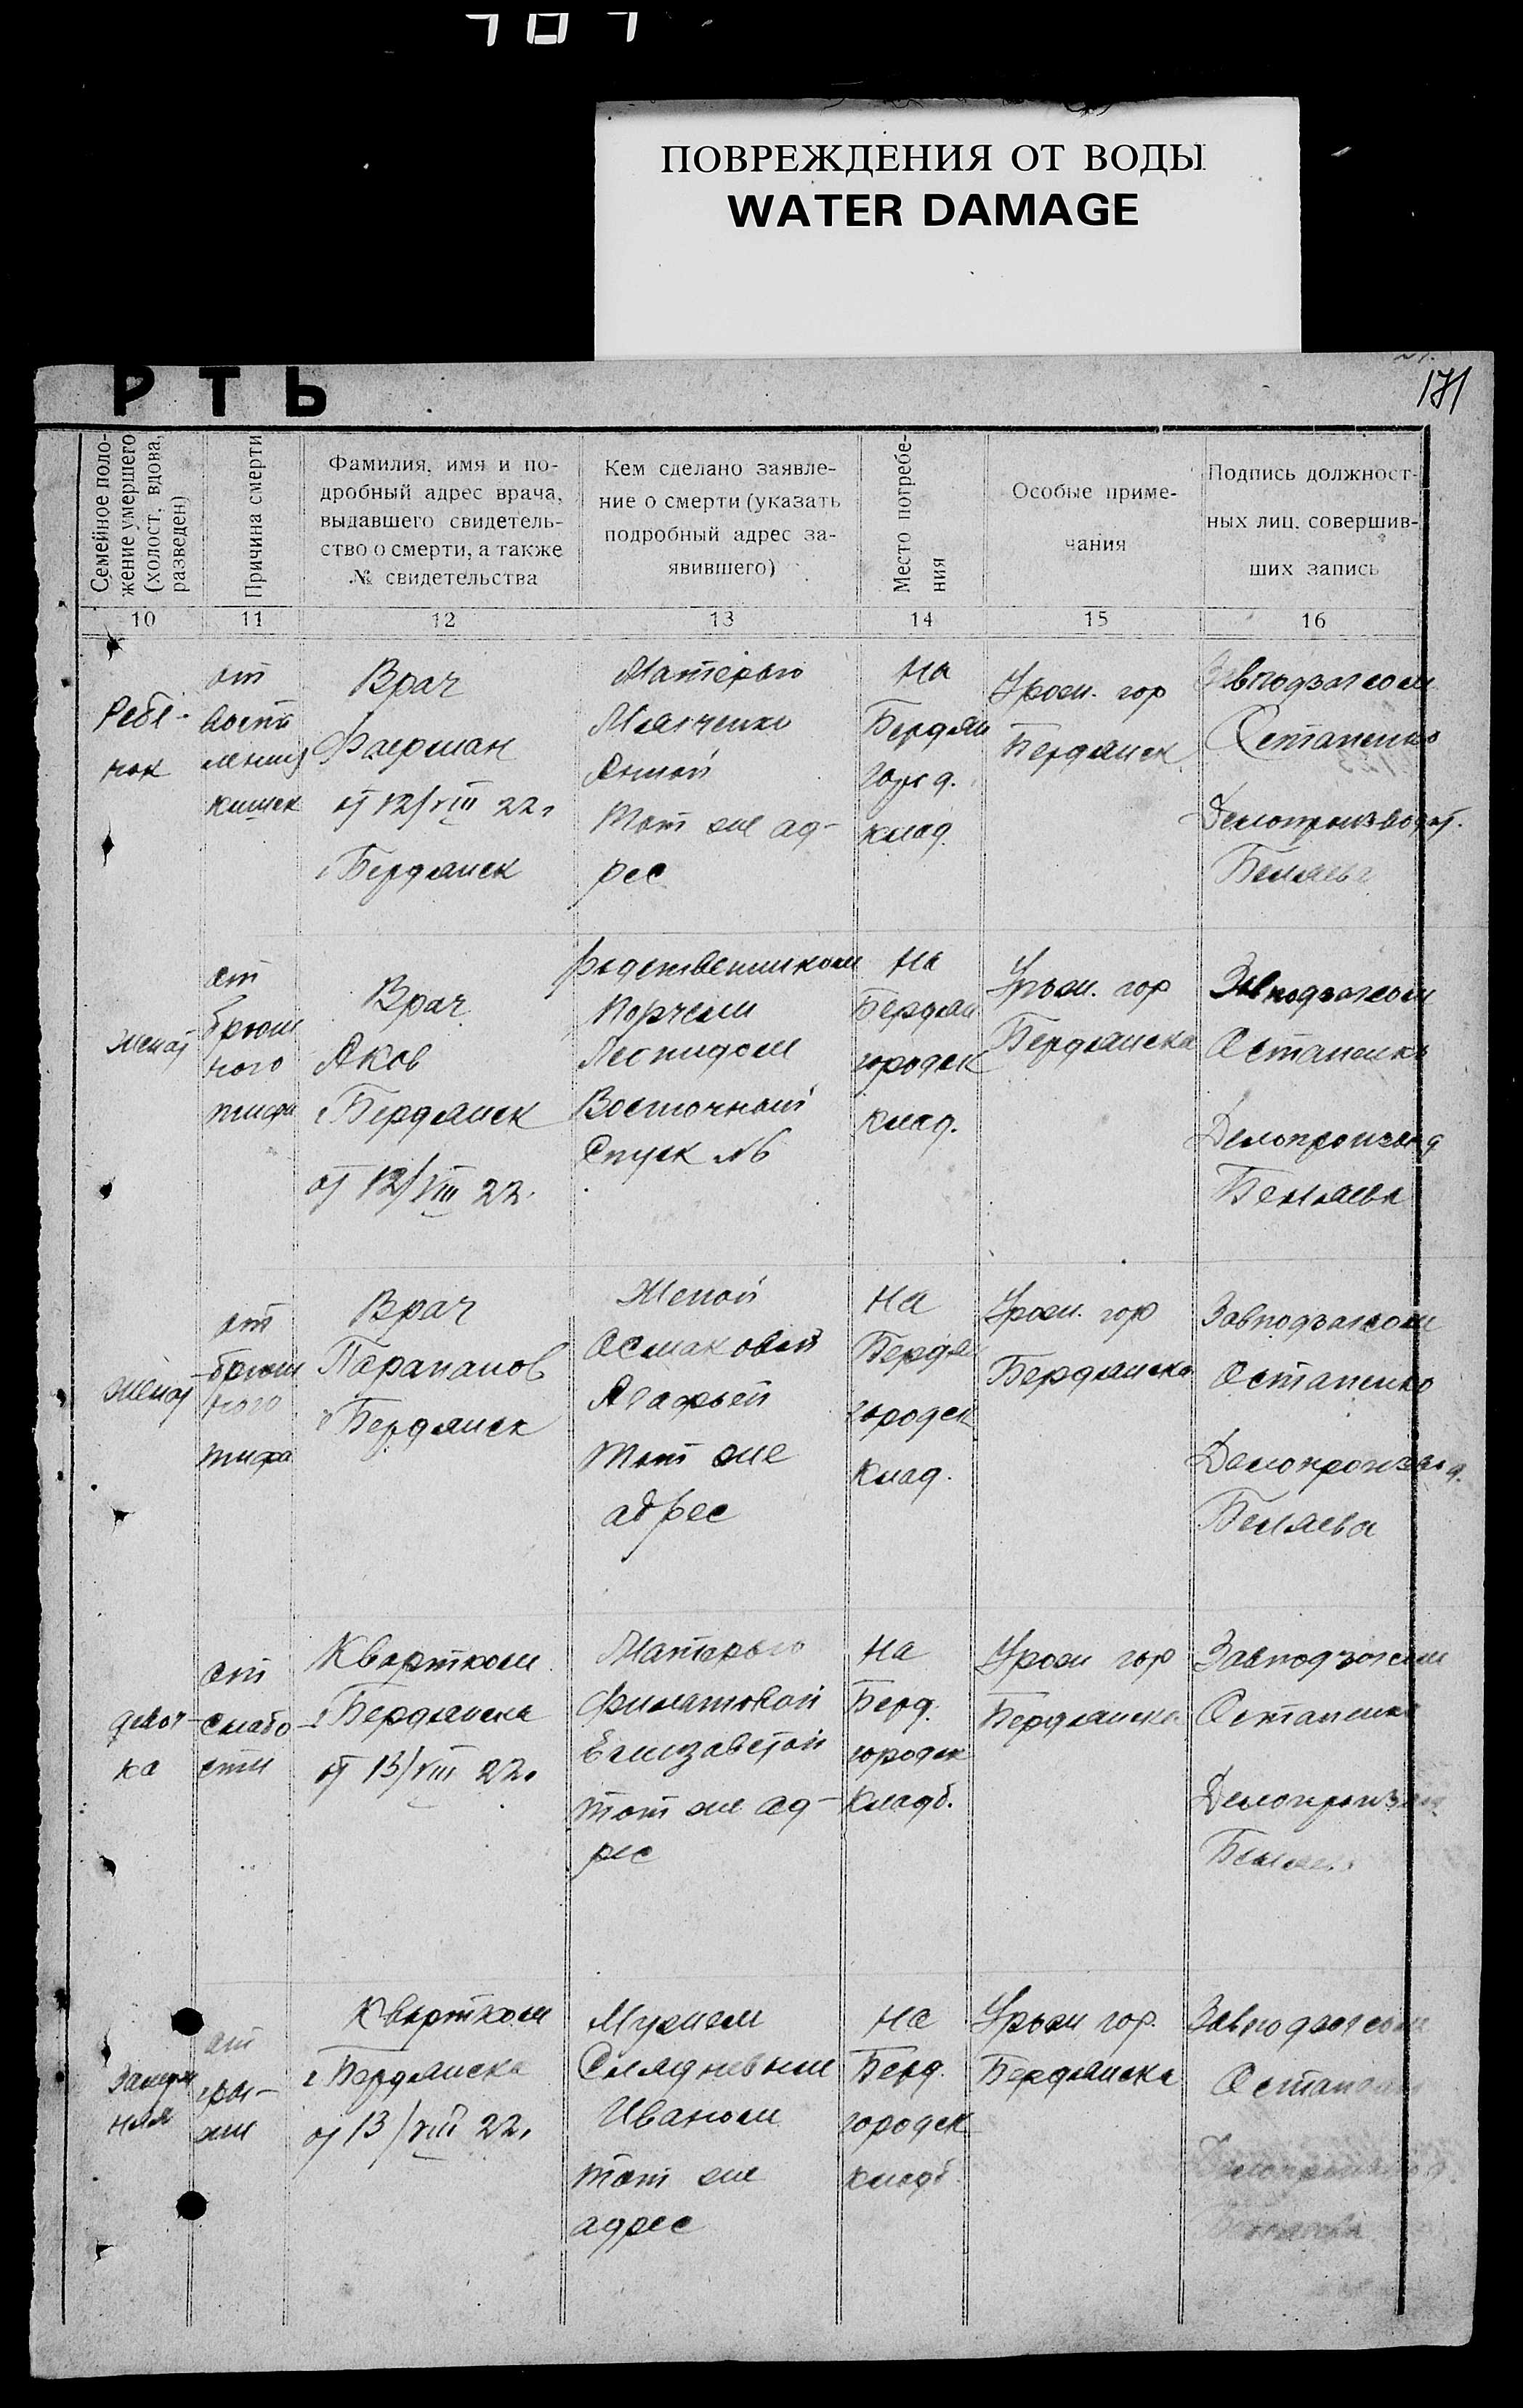 ПОВРЕЖДЕНИЯ ОТ ВОДЫ
WATER DAMAGE
РТЬ
171
Семейное поло-
жение умершего
(холост, вдова,
разведен)
Причина смерти
Фамилия, имя и по-
дробный адрес врача,
выдавшего свидетель-
ство о смерти, а также
№ свидетельства
Кем сделано заявле-
ние о смерти (указать
подробный адрес за-
явившего)
Место погребе-
ния
Особые приме-
чания
Подпись должност-
ных лиц, совершив-
ших запись
10
11
12
13
14
15
16
Ребе-
нок
от
воспа
ления
кишек
Врач
Фаерман
от 12/VIII 22г
г Бердянск
Матерью
Анной
Тот же ад-
рес
На
Бердян
горд.
клад.
Урож. гор
Бердянск
Завподзагсом
Остапенко
Делопроизводт.
Беляева
женат
от
брюш
ного
тифа
Врач
Яков
г Бердянск
от 12/VIII 22.
родственником
Леонидом
Восточный
Спуск №6
На
Бердян
городск
клад.
Урож. гор
Бердянска
Завподзагсом
Остапенко
Делопроизвод
Беляева
женат
от
брюш
ного
тифа
Врач
Парапанов
г Бердянск
Женой
Осмаковой
Агафьей
Тот же
адрес
На
Бердян
городск
клад.
Урож. гор
Бердянска
Завподзагсом
Остапенко
Делопроизвод.
Беляева
девоч-
ка
от
слабо-
сти
Квартком
г Бердянска
от 13/VIII 22г
Матерью
Филатовой
Елизаветой
тот же ад-
рес
На
Берд.
городск
кладб.
Урож гор
Бердянска
Завподзагсом
Остапенко
Делопроизвод
Беляева
Замуж
няя
от
гры-
жи
Квартком
г Бердянска
от 13/VIII 22г
Мужем
Следневым
Иваном
тот же
адрес
На
Берд.
городск
кладб.
Урож гор.
Бердянска
Завподзагсом
Остапенко
Делопроизвод.
Беляева